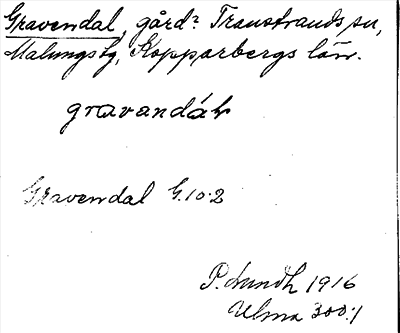 Gravendal, gård? Transtrands sn,
Malungs tg, Kopparbergs län.
gravandáḷ
Gravendal G.10:2
P. Lundh 1916
Ulma 300:1